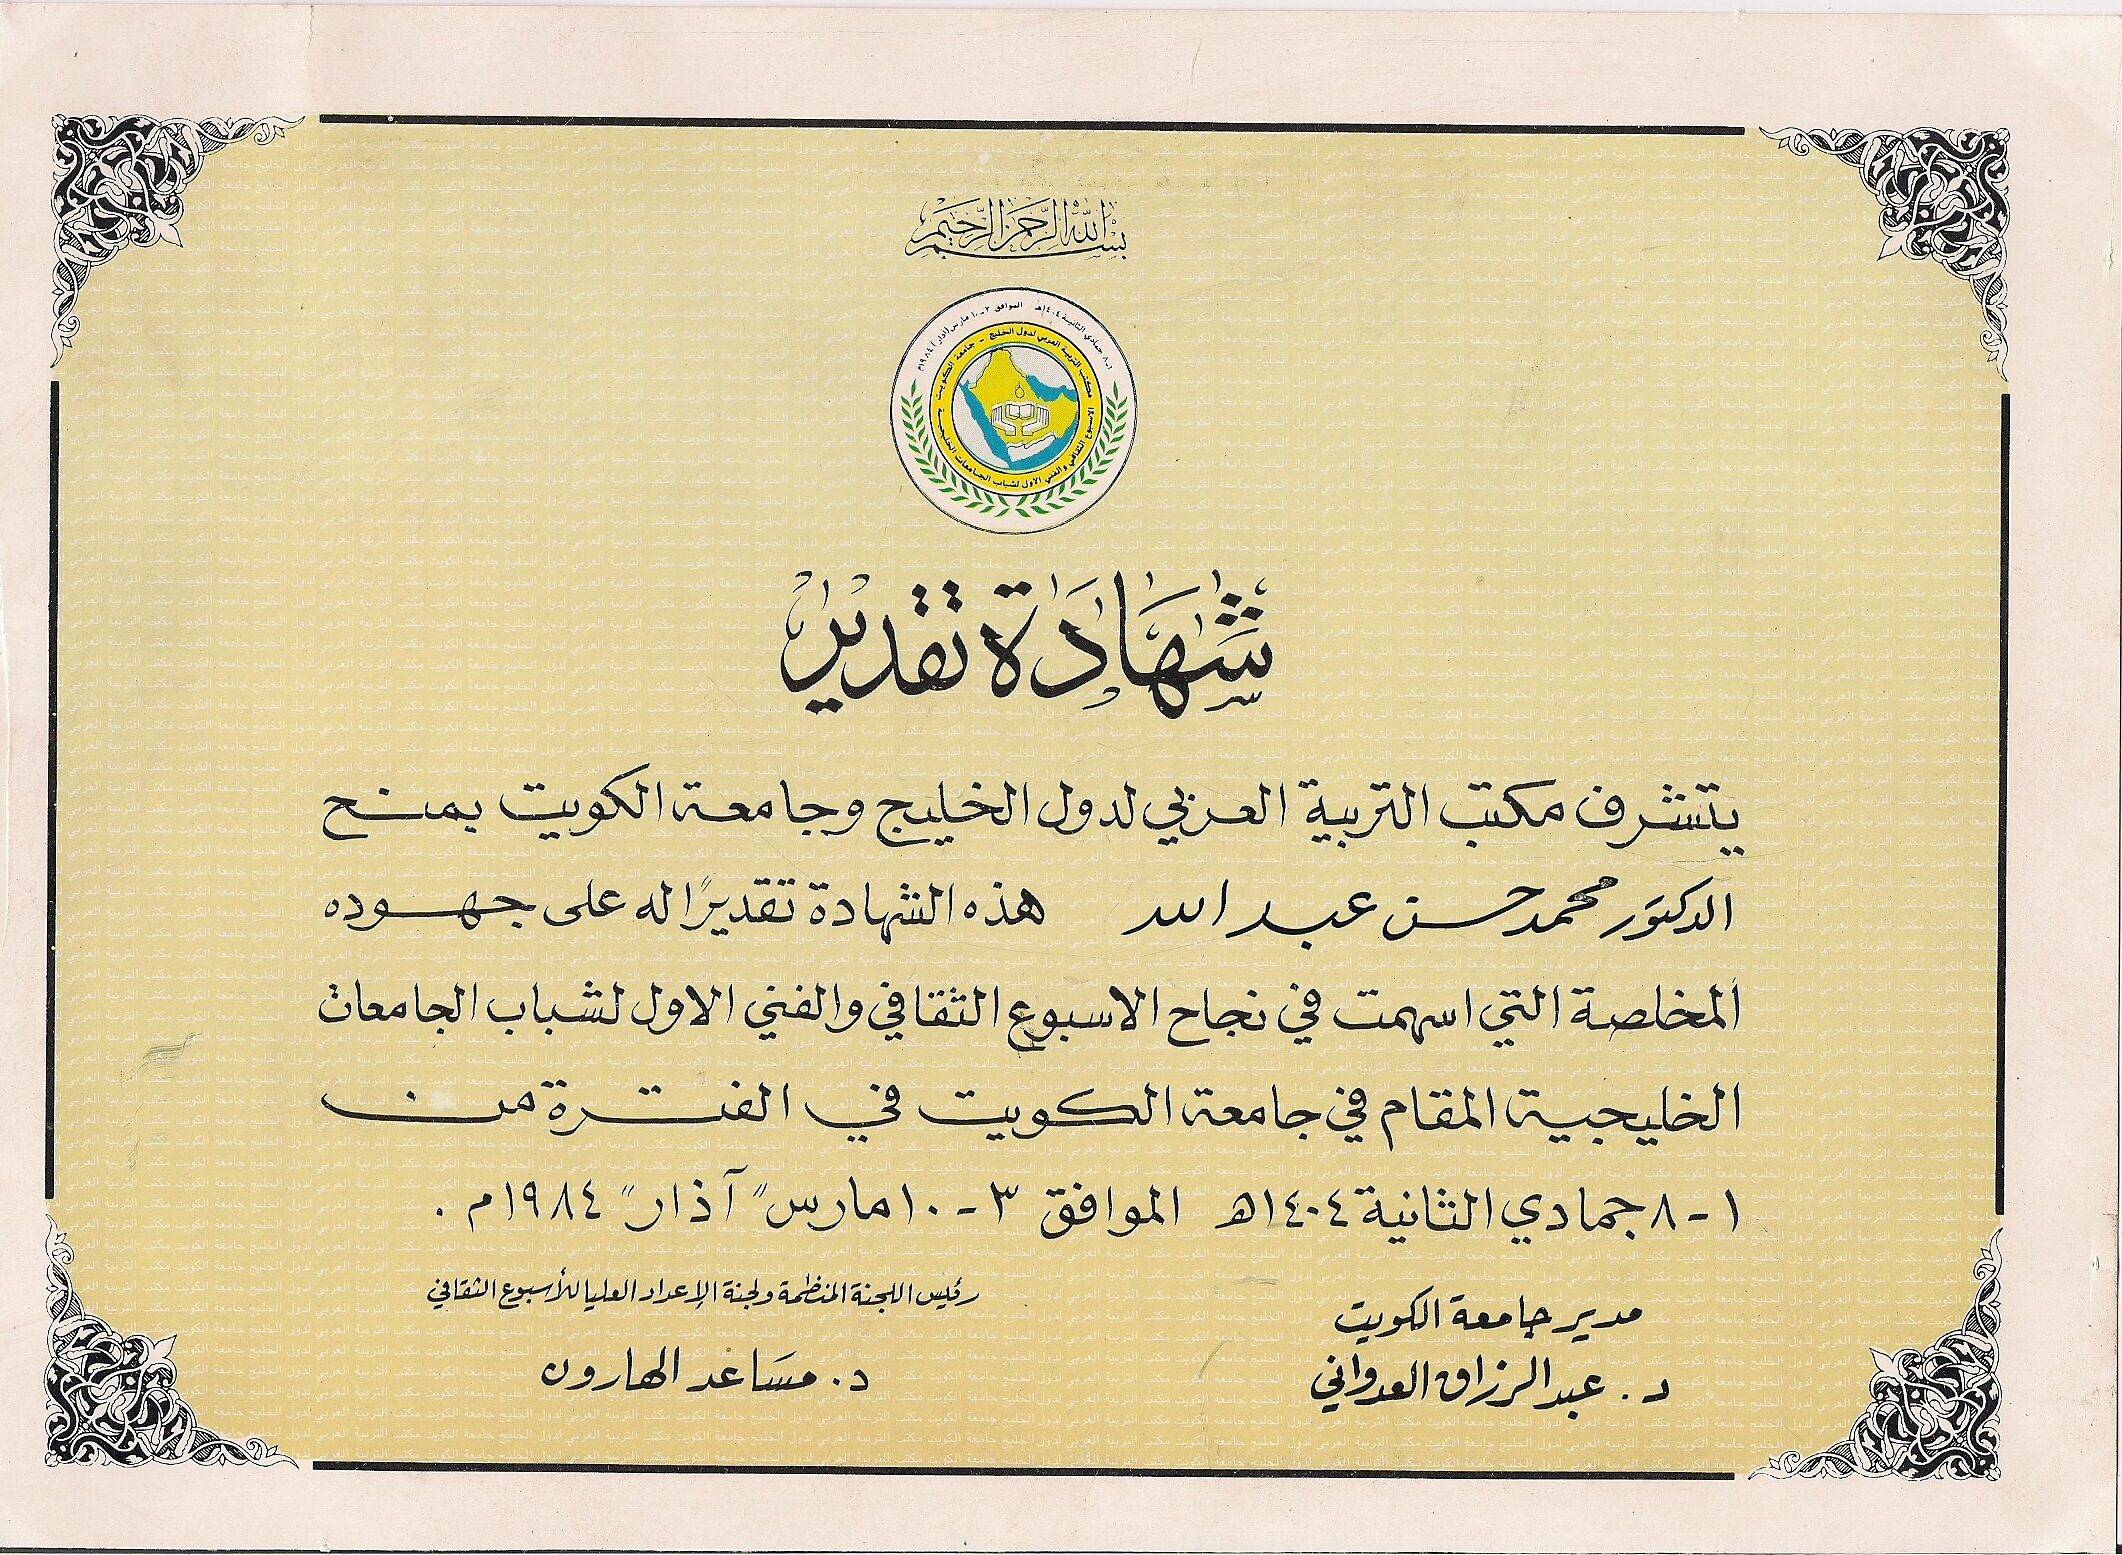 بسم الله الرحمن الرحيم
١-٨ جمادي الثانية ١٤٠٤هـ الموافق ٣-١٠ مارس (آذار) ١٩٨٤م
مكتب التربية العربي لدول الخليج - جامعة الكويت
الاسبوع الثقافي والفني الاول لشباب الجامعات الخليجية
شهادة تقدير
يتشرف مكتب التربية العربي لدول الخليج وجامعة الكويت بمنح
الدكتور محمد حسن عبد الله هذه الشهادة تقديرًا له على جهوده
المخلصة التي اسهمت في نجاح الاسبوع الثقافي والفني الاول لشباب الجامعات
الخليجية المقام في جامعة الكويت في الفترة من
١-٨ جمادي الثانية ١٤٠٤هـ الموافق ٣-١٠ مارس "آذار" ١٩٨٤م.
مدير جامعة الكويت
د. عبد الرزاق العدواني
رئيس اللجنة المنظمة ولجنة الإعداد العليا للأسبوع الثقافي
د. مساعد الهارون